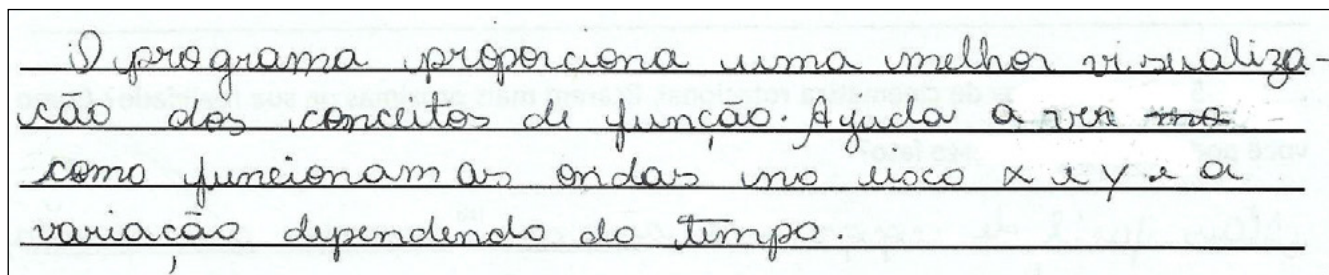 O programa proporciona uma melhor visualiza-
ção dos conceitos de função. Ajuda a ver
como funcionam as ondas no x e y e a
variação dependendo do tempo